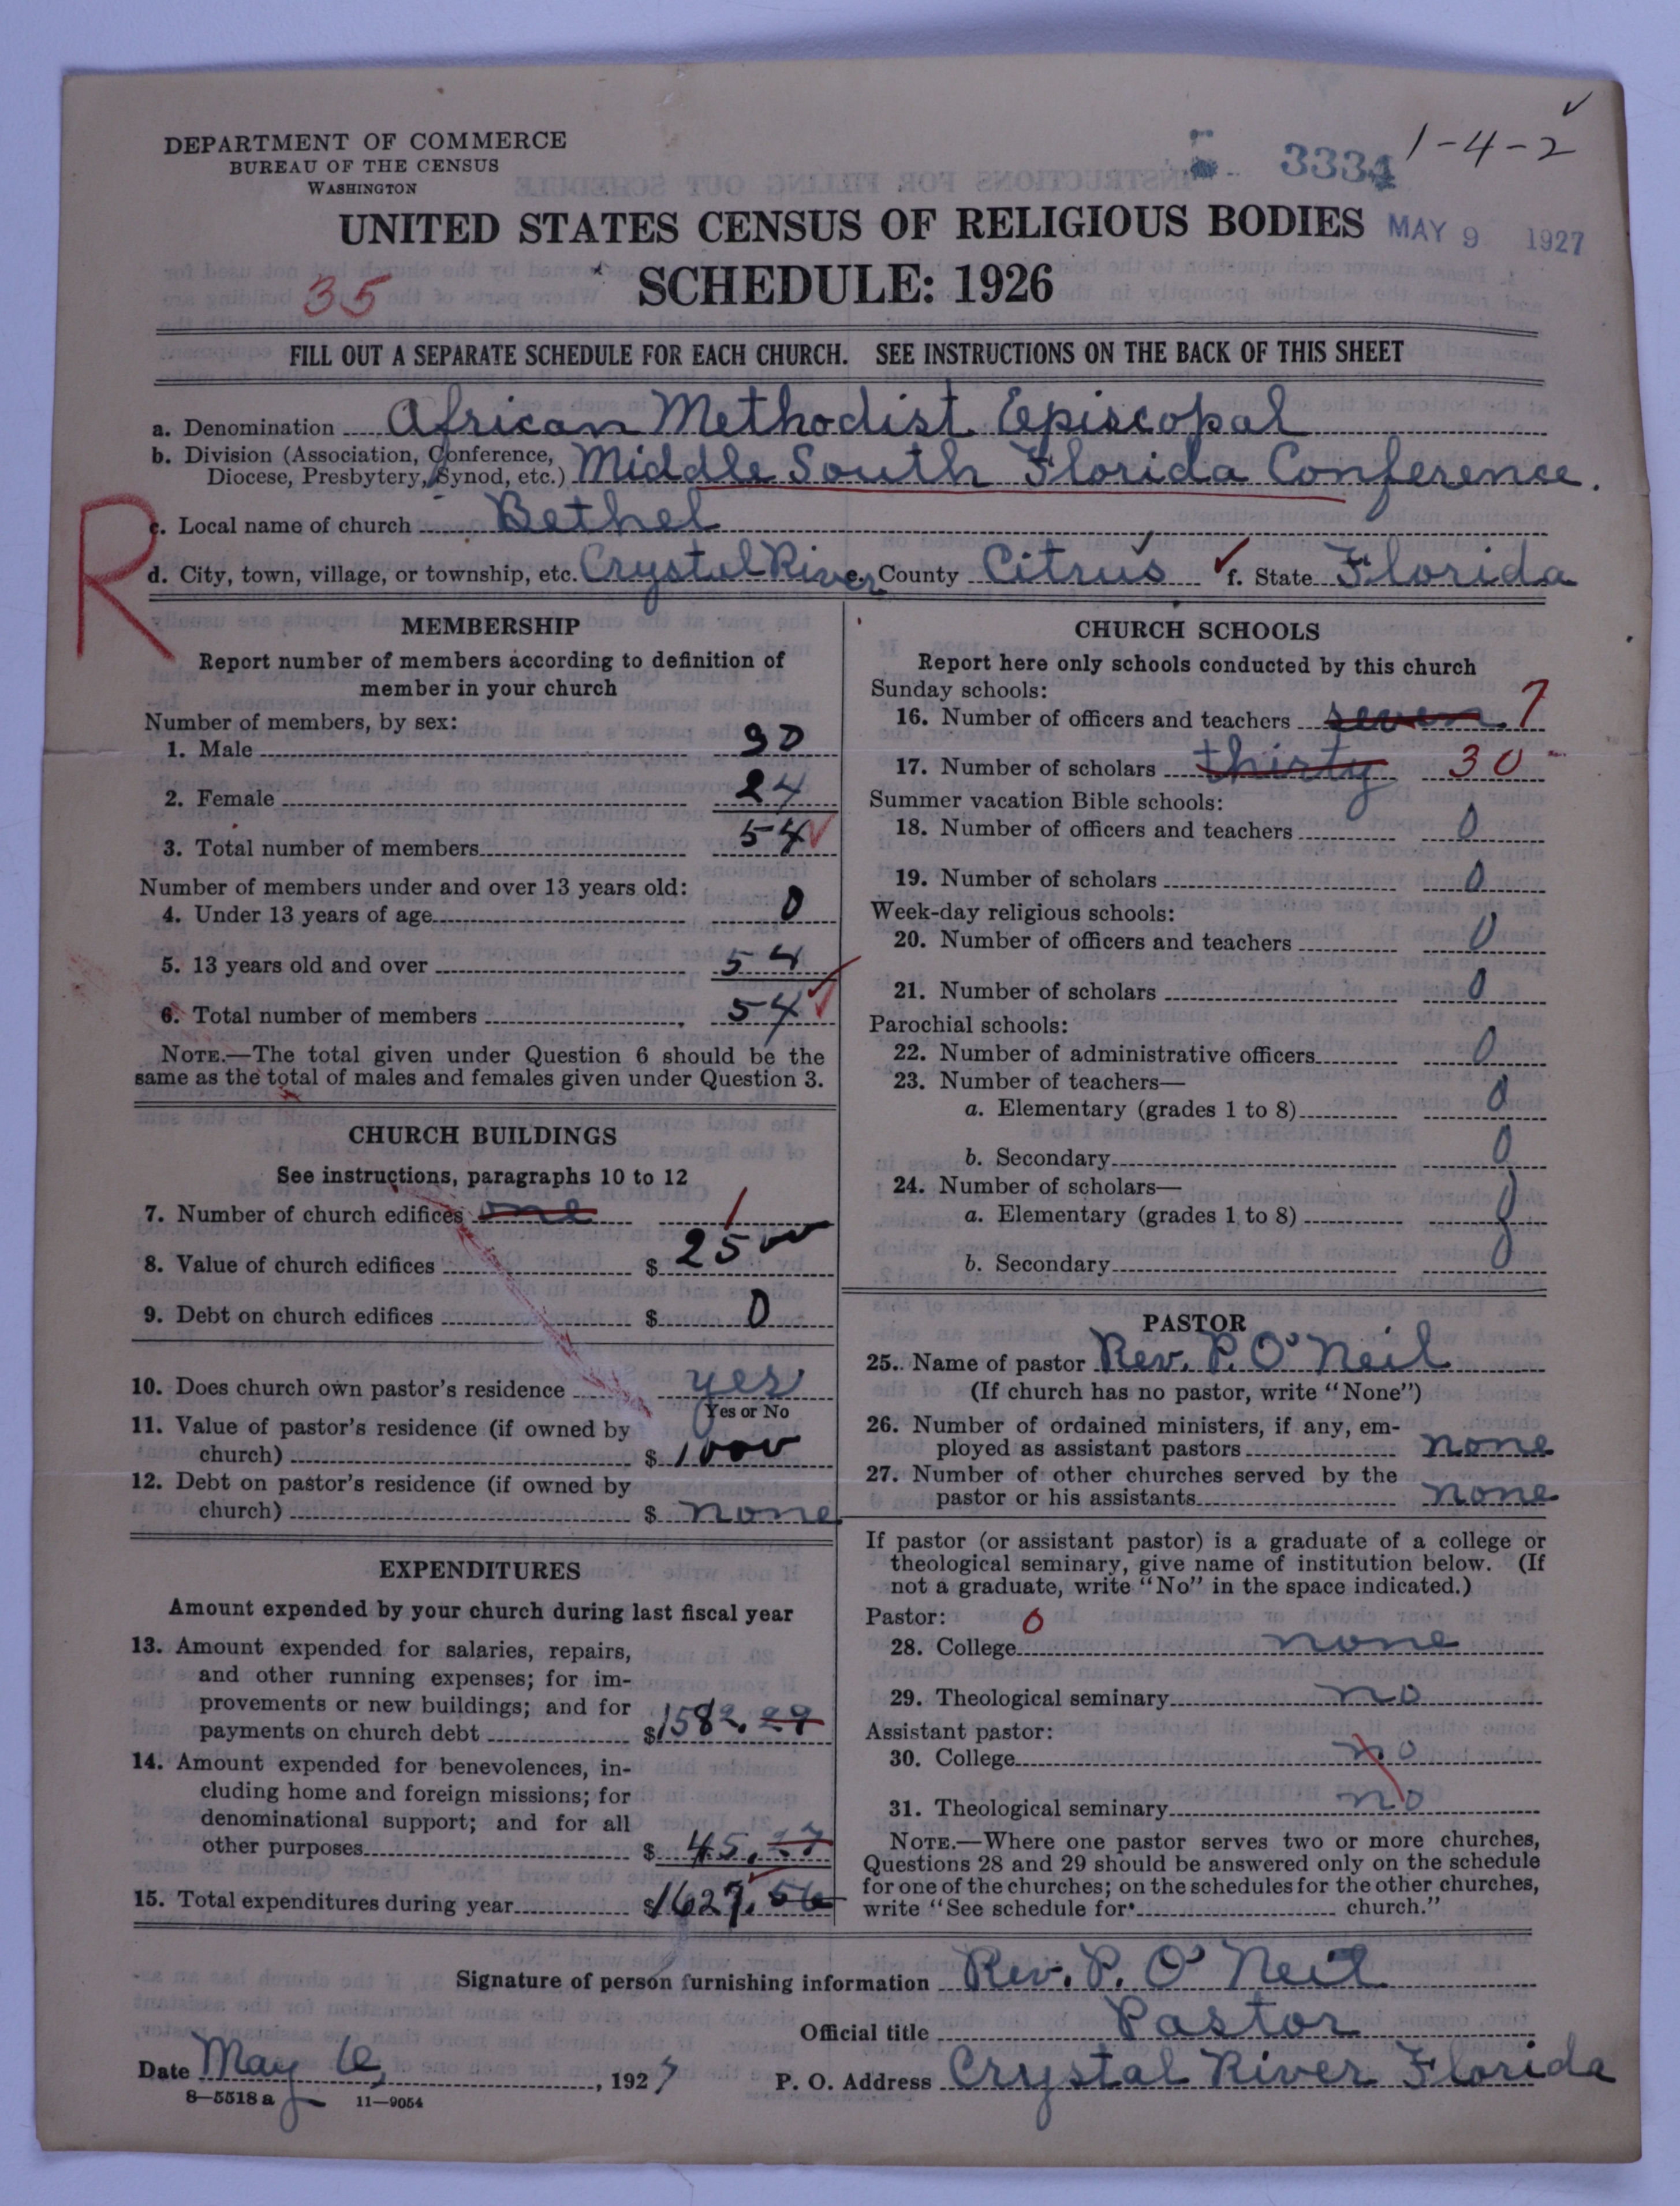 DEPARTMENT OF COMMERCE
BUREAU OF THE CENSUS
WASHINGTON
3334
1-4-2
UNITED STATES CENSUS OF RELIGIOUS BODIES
MAY 9 1927
SCHEDULE: 1926
35
FILL OUT A SEPARATE SCHEDULE FOR EACH CHURCH. SEE INSTRUCTIONS ON THE BACK OF THIS SHEET
a. Denomination African Methodist Episcopal
b. Division (Association, Conference,
Diocese, Presbytery, Synod, etc.) Middle South Florida Conference.
R
c. Local name of church Bethel
d. City, town, village, or township, etc. Crystal River e. County Citrus f. State Florida
MEMBERSHIP
Report number of members according to definition of
member in your church
Number of members, by sex:
1. Male 30
2. Female 24
3. Total number of members 54
Number of members under and over 13 years old:
4. Under 13 years of age 0
5. 13 years old and over 54
6. Total number of members 54
NOTE.—The total given under Question 6 should be the
same as the total of males and females given under Question 3.
CHURCH BUILDINGS
See instructions, paragraphs 10 to 12
7. Number of church edifices one 1
8. Value of church edifices $ 2500
9. Debt on church edifices $ 0
10. Does church own pastor's residence yes
Yes or No
11. Value of pastor's residence (if owned by
church) $ 1000
12. Debt on pastor's residence (if owned by
church) $ none
EXPENDITURES
Amount expended by your church during last fiscal year
13. Amount expended for salaries, repairs,
and other running expenses; for im-
provements or new buildings; and for
payments on church debt $1582.29
14. Amount expended for benevolences, in-
cluding home and foreign missions; for
denominational support; and for all
other purposes $ 45.27
15. Total expenditures during year $1627.56
CHURCH SCHOOLS
Report here only schools conducted by this church
Sunday schools:
16. Number of officers and teachers seven 7
17. Number of scholars thirty 30
Summer vacation Bible schools:
18. Number of officers and teachers 0
19. Number of scholars 0
Week-day religious schools:
20. Number of officers and teachers 0
21. Number of scholars 0
Parochial schools:
22. Number of administrative officers 0
23. Number of teachers—
a. Elementary (grades 1 to 8) 0
b. Secondary 0
24. Number of scholars—
a. Elementary (grades 1 to 8) 0
b. Secondary 0
PASTOR
25. Name of pastor Rev. P. O'Neil
(If church has no pastor, write "None")
26. Number of ordained ministers, if any, em-
ployed as assistant pastors none
27. Number of other churches served by the
pastor or his assistants none
If pastor (or assistant pastor) is a graduate of a college or
theological seminary, give name of institution below. (If
not a graduate, write "No" in the space indicated.)
Pastor: 0
28. College none
29. Theological seminary no
Assistant pastor:
30. College no
31. Theological seminary no
NOTE.—Where one pastor serves two or more churches,
Questions 28 and 29 should be answered only on the schedule
for one of the churches; on the schedules for the other churches,
write "See schedule for church."
Signature of person furnishing information Rev. P. O'Neil
Official title Pastor
Date May 6, 1927
P. O. Address Crystal River Florida
8—5518 a 11—9054